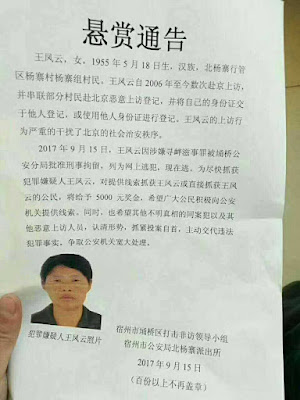 悬赏通告
王风云，女，1955 年 5 月 18 日生，汉族，北杨寨行管
区杨寨村杨寨组村民。王风云自 2006 年至今数次赴京上访，
并串联部分村民赴北京恶意上访登记，并将自己的身份证交
于他人登记，或使用他人身份证进行登记。王风云的上访行
为严重的干扰了北京的社会治安秩序。
2017 年 9 月 15 日，王风云因涉嫌寻衅滋事罪被埇桥公
安分局批准刑事拘留，列为网上逃犯，现在逃。为尽快抓获
犯罪嫌疑人王风云，对提供线索抓获王风云或直接抓获王风
云的公民，将给予 5000 元奖金，希望广大公民积极向公安
机关提供线索。同时，也希望其他不明真相的同案犯以及其
他恶意上访人员，认清形势，抓紧投案自首，主动交代违法
犯罪事实，争取公安机关宽大处理。
犯罪嫌疑人王风云照片
宿州市埇桥区打击非访领导小组
宿州市公安局北杨寨派出所
2017 年 9 月 15 日
（百份以上不再盖章）